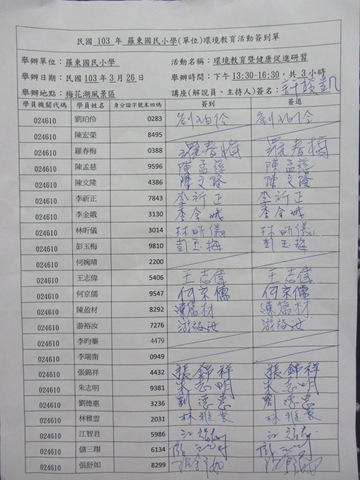 民國 103 年 羅東國民小學(單位)環境教育活動簽到單
舉辦單位：羅東國民小學 活動名稱：環境教育暨健康促進研習
舉辦日期：民國 103 年 3 月 26 日 舉辦時間：下午 13:30-16:30，共 3 小時
舉辦地點：梅花湖風景區 講座(解說員、主持人)簽名：
學員機關代碼 學員姓名 身分證字號末四碼 簽到 簽退
024610 劉珀伶 0283 劉珀伶 劉珀伶
024610 陳宏榮 8495
024610 羅春梅 0388 羅春梅 羅春梅
024610 陳孟慈 9596 陳孟慈 陳孟慈
024610 陳文隆 4386 陳文隆 陳文隆
024610 李祈正 7843 李祈正 李祈正
024610 李金娥 3130 李金娥 李金娥
024610 林昕儀 3014 林昕儀 林昕儀
024610 彭玉梅 9810 彭玉梅 彭玉梅
024610 何婉晴 2200
024610 王志偉 5406 王志偉 王志偉
024610 何京儒 9547 何京儒 何京儒
024610 陳盈材 8292 陳盈材 陳盈材
024610 游裕汝 7276 游裕汝 游裕汝
024610 4479
024610 李瑞衛 0949
024610 張錦祥 4432 張錦祥 張錦祥
024610 朱志明 9381 朱志明 朱志明
024610 劉德惠 3236 劉德惠 劉德惠
024610 林雅雲 2031 林雅雲 林雅雲
024610 江智君 5986
024610 儲三翔 6134
024610 張舒如 8299